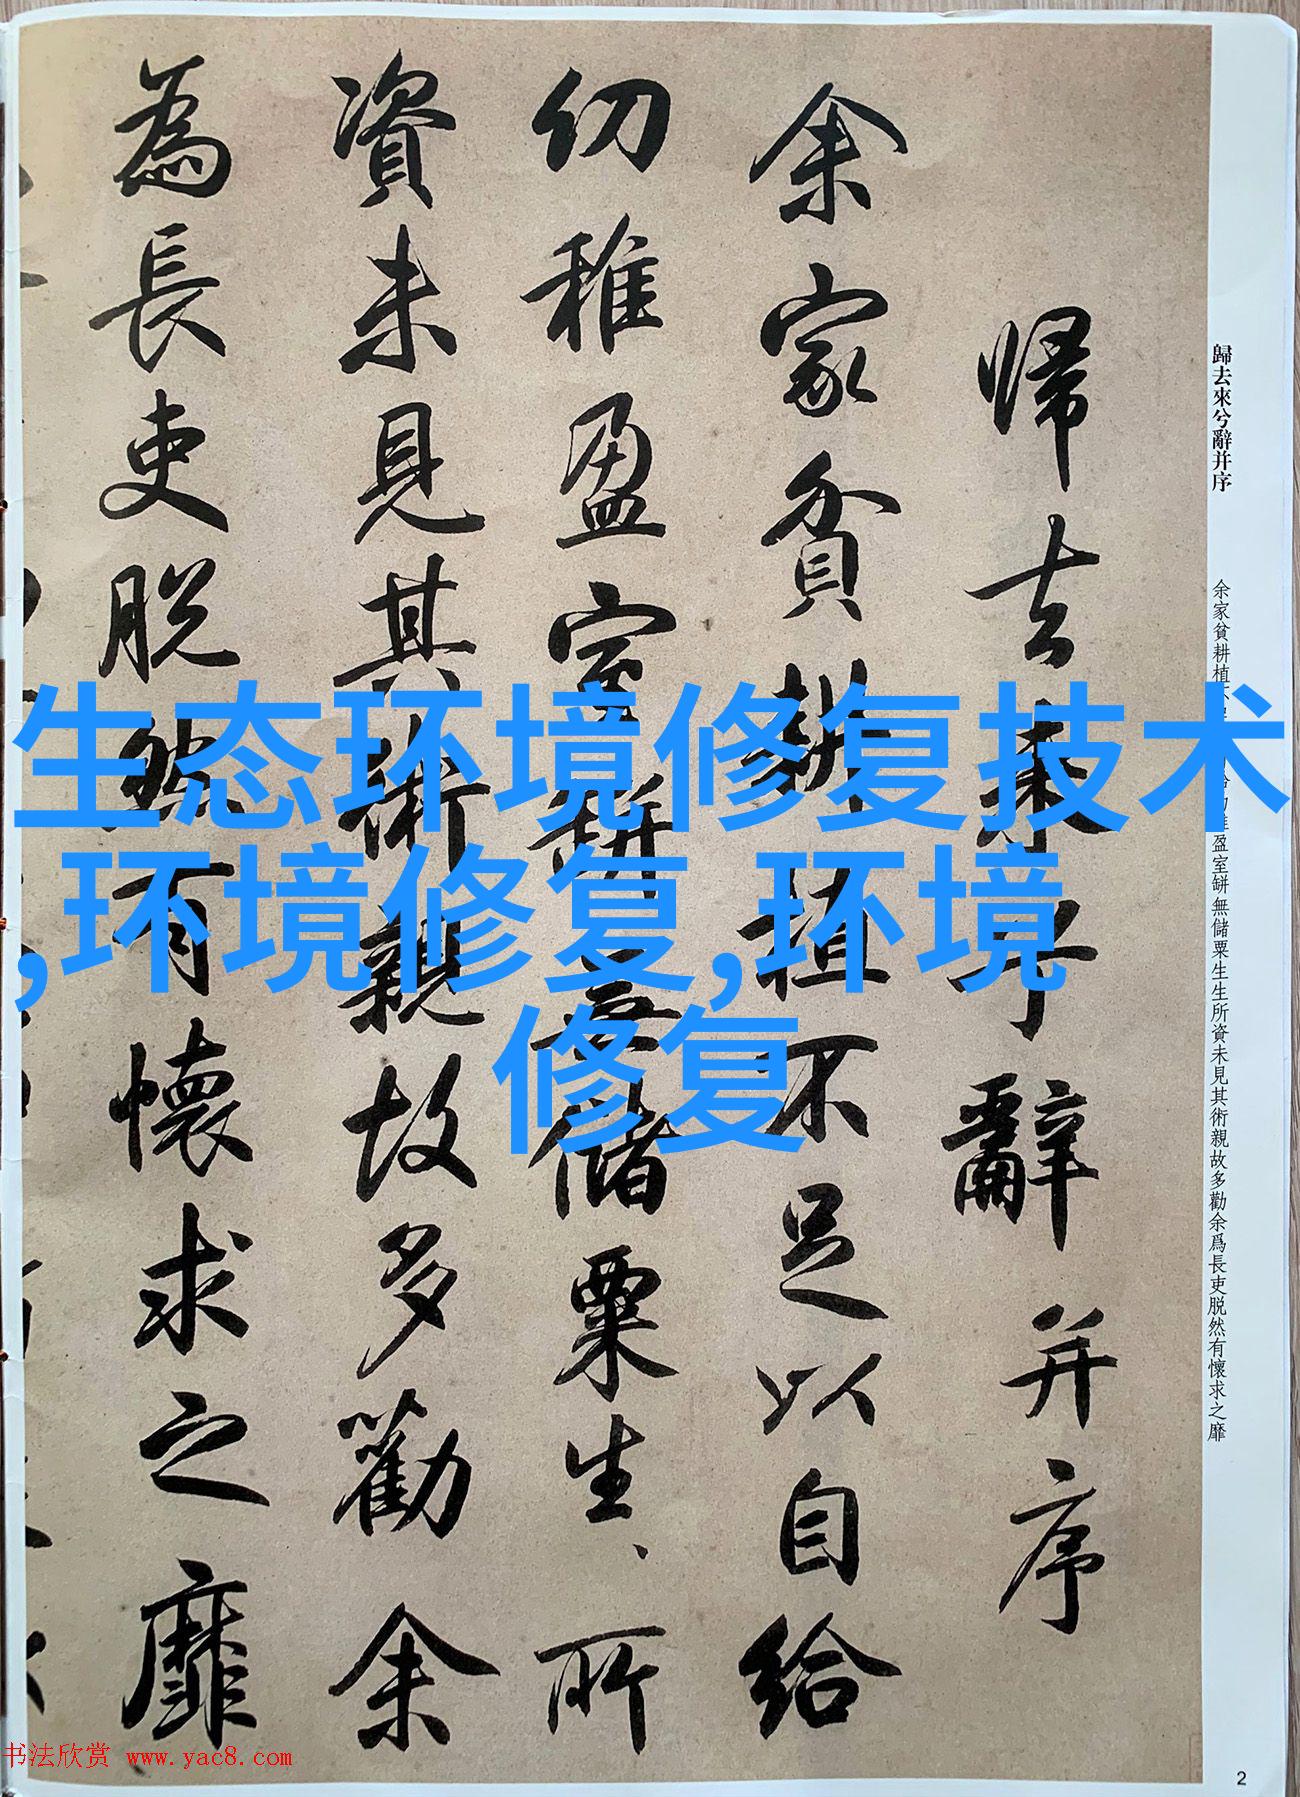 歸去來兮辭并序
余家貧耕植不
盈室缾無儲粟生生所資未見其術親故多勸余爲長吏脱然有懷求之靡
帰去来兮辭并序
余家貧耕植不足以自給
幼稚盈室缾無儲粟生、所
資未見其術親故多勸余
為長吏脱然有懷求之靡
生态环境修复技术
,环境修复,环境
修复
书法欣赏 www.yac8.com
2